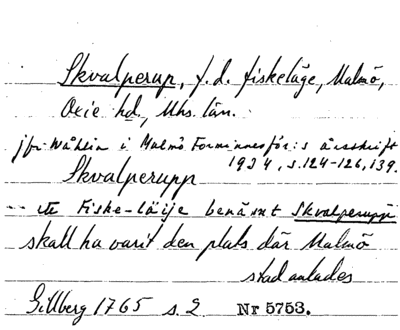 Skvalperup, f.d. fiskeläge, Malmö,
Oxie hd., Mhs. län.
jfr Wåhlin i Malmö Forminnesför:s årsskrift
1934, s. 124-126, 139.
Skvalperupp
- ett Fiske-läije benämt Skvalperupp
skall ha varit den plats där Malmö
stad anlades
Gillberg 1765 s. 2 Nr 5753.